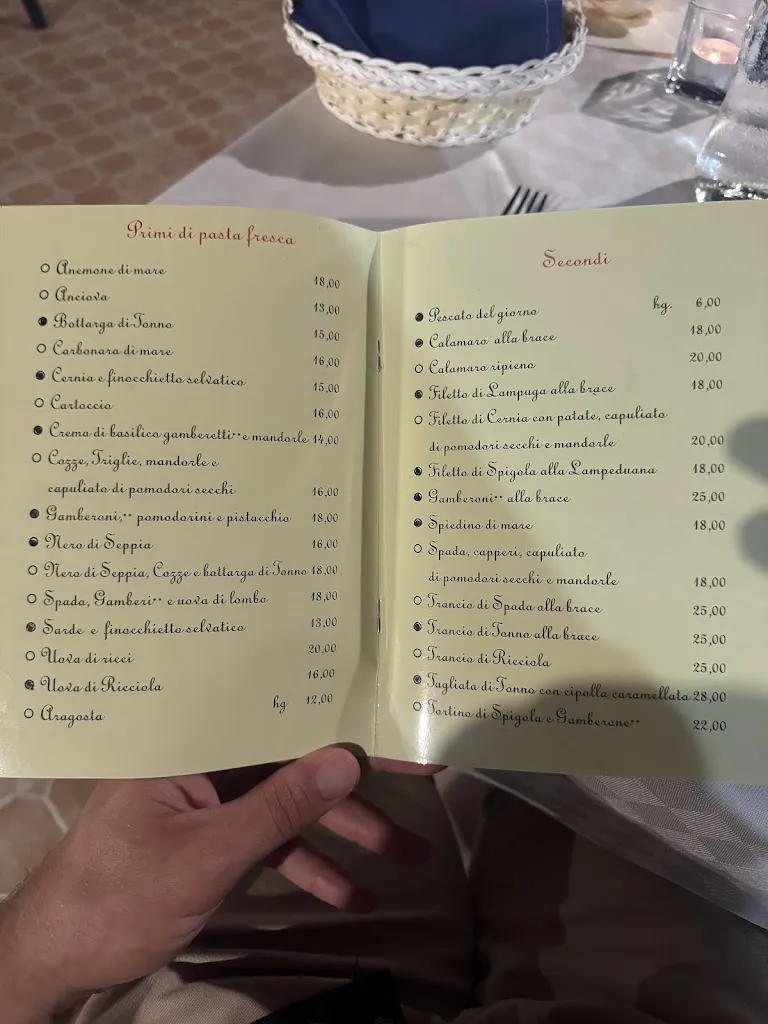 Primi di pasta fresca
Anemone di mare 18,00
Anciova 13,00
Bottarga di Tonno 15,00
Carbonara di mare 16,00
Cernia e finocchietto selvatico 15,00
Cartoccio 16,00
Crema di basilico gamberetti** e mandorle 14,00
Cozze, Triglie, mandorle e
capuliato di pomodori secchi 16,00
Gamberoni,** pomodorini e pistacchio 18,00
Nero di Seppia 16,00
Nero di Seppia, Cozze e bottarga di Tonno 18,00
Spada, Gamberi** e uova di lombo 18,00
Sarde e finocchietto selvatico 13,00
Uova di ricci 20,00
Uova di Ricciola 16,00
Aragosta hg 12,00
Secondi
Pescato del giorno hg. 6,00
Calamaro alla brace 18,00
Calamaro ripieno 20,00
Filetto di Lampuga alla brace 18,00
Filetto di Cernia con patate, capuliato
di pomodori secchi e mandorle 20,00
Filetto di Spigola alla Lampeduana 18,00
Gamberoni** alla brace 25,00
Spiedino di mare 18,00
Spada, capperi, capuliato
di pomodori secchi e mandorle 18,00
Trancio di Spada alla brace 25,00
Trancio di Tonno alla brace 25,00
Trancio di Ricciola 25,00
Tagliata di Tonno con cipolla caramellata 28,00
Tortino di Spigola e Gamberone** 22,00